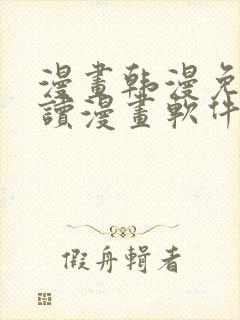 漫畫韩漫免
讀漫畫軟件
假舟輯者